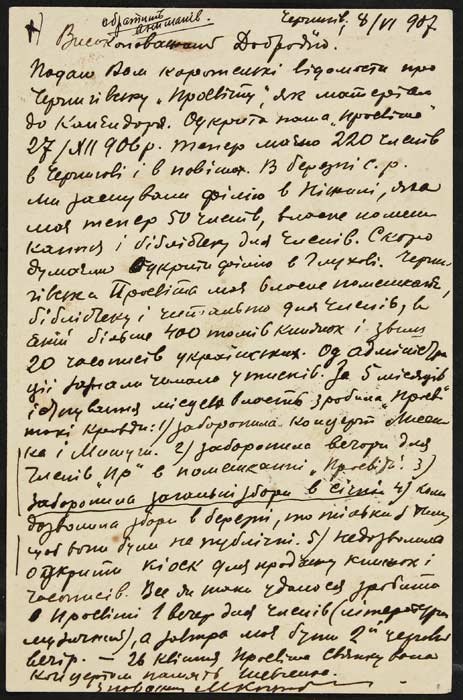 Чернигів, 8/VI 907
Високоповажаний Добродію.
Подаю Вам коротенькі відомости про
Чернигівську „Просвіту", як матеріал
до Календоря. Одкрита наша „Просвіта"
27/XII 906 р. тепер маємо 220 членів
в Чернигові і в повітах. В березні с. р.
ми заснували філію в Ніжині, яка
має тепер 50 членів, власне помеш
кання і бібліотеку для членів. Скоро
думаємо одкрити філію в Глухові. Черни
гівська Просвіта має власне помешкання,
бібліотеку і читальню для членів, в
якій більше 400 томів книжок і звиш
20 часописів українських. Од адміністра
ції зазнали чимало утисків. За 5 місяців
існування місцева власть зробила „Просві
ті" такі кривди: 1) заборонила концерт
ка і 2) заборонила вечори для
членів „Пр" в помешканні „Просвіти" 3)
заборонила загальні збори в січні 4) коли
дозволила збори в березні, то тільки з тим,
щоб вони були не публичні. 5) не дозволила
одкрити кіоск для продажу книжок і
часописів. Все ж таки удалося зробити
в Просвіті 1 вечер для членів (літературно
музичний), а завтра має бути 2й черговий
вечір. — 26 квітня Просвіта святкувала
концертом память Шевченка.
З поважанням М Коцюб